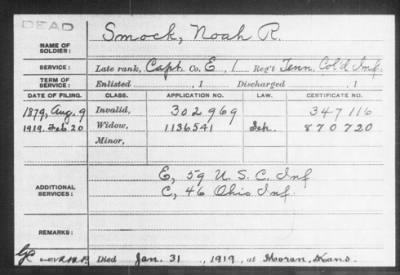 DEAD
NAME OF SOLDIER: Smock, Noah R.
SERVICE: Late rank, Capt. Co. E, 1 Reg't Tenn. Col'd Inf.
TERM OF SERVICE: Enlisted , 1 Discharged , 1
DATE OF FILING. CLASS. APPLICATION NO. LAW. CERTIFICATE NO.
1879, Aug. 9 Invalid, 302969 347116
1919, Feb 20 Widow, 1136541 870720
Minor,
ADDITIONAL SERVICES: E, 59 U. S. C. Inf
C, 46 Ohio Inf.
REMARKS:
Died Jan. 31 , 1919, at Kans.